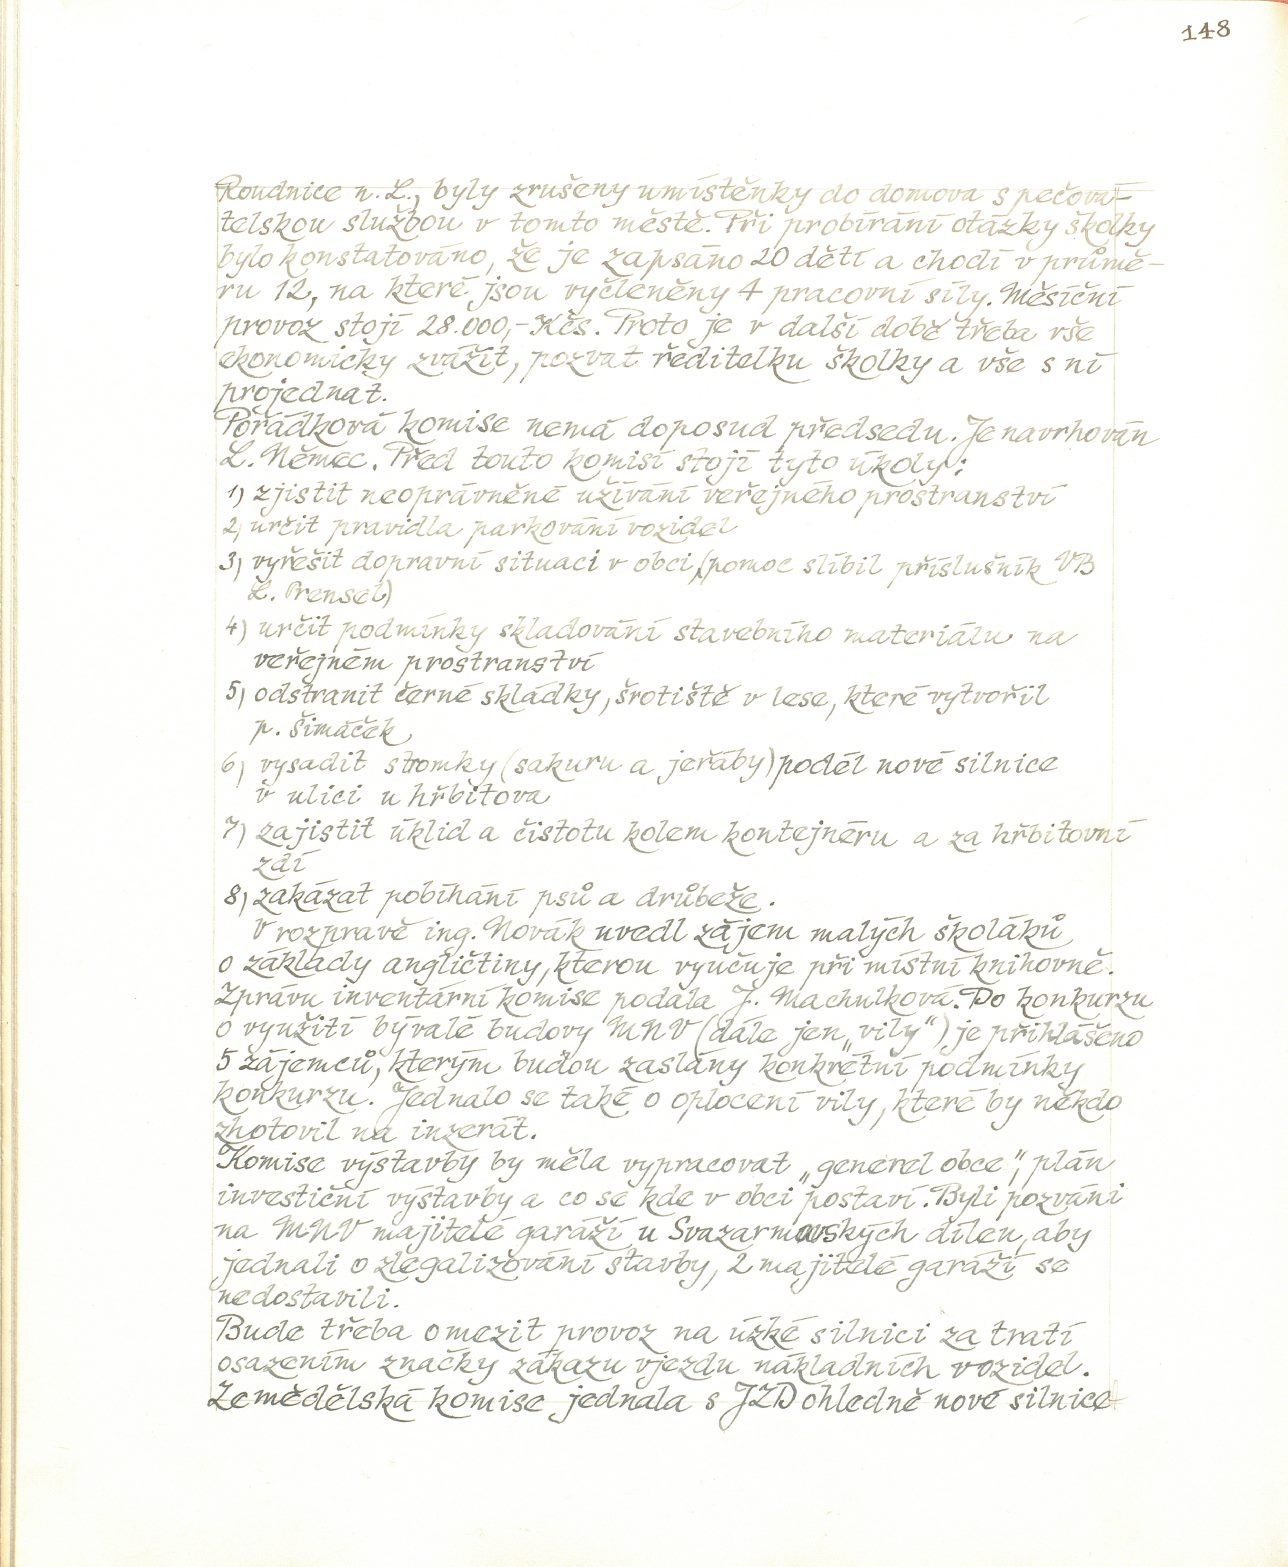 148
Roudnice n. L., byly zrušeny umístěnky do domova s pečova-
telskou službou v tomto městě. Při probírání otázky školky
bylo konstatováno, že je zapsáno 20 dětí a chodí v průmě-
ru 12, na které jsou vyčleněny 4 pracovní síly. Měsíční
provoz stojí 28.000,- Kčs. Proto je v další době třeba vše
ekonomicky zvážit, pozvat ředitelku školky a vše s ní
projednat.
Pořádková komise nemá doposud předsedu. Je navrhován
L. Němec. Před touto komisí stojí tyto úkoly:
1) zjistit neoprávněné užívání veřejného prostranství
2) určit pravidla parkování vozidel
3) vyřešit dopravní situaci v obci (pomoc slíbil příslušník VB
L. Prensel)
4) určit podmínky skladování stavebního materiálu na
veřejném prostranství
5) odstranit černé skládky, šrotiště v lese, které vytvořil
p. Šimáček
6) vysadit stromky (sakuru a jeřáby) podél nové silnice
v ulici u hřbitova
7) zajistit úklid a čistotu kolem kontejnéru a za hřbitovní
zdí
8) zakázat pobíhání psů a drůbeže.
V rozpravě ing. Novák uvedl zájem malých školáků
o základy angličtiny, kterou vyučuje při místní knihovně.
Zprávu inventární komise podala J. Machulková. Do konkurzu
o využití bývalé budovy MNV (dále jen „vily“) je přihlášeno
5 zájemců, kterým budou zaslány konkrétní podmínky
konkurzu. Jednalo se také o oplocení vily, které by někdo
zhotovil na inzerát.
Komise výstavby by měla vypracovat „generel obce“, plán
investiční výstavby a co se kde v obci postaví. Byli pozváni
na MNV majitelé garáží u Svazarmovských dílen, aby
jednali o zlegalizování stavby, 2 majitelé garáží se
nedostavili.
Bude třeba omezit provoz na úzké silnici za tratí
osazením značky zákazu vjezdu nákladních vozidel.
Zemědělská komise jednala s JZD ohledně nové silnice